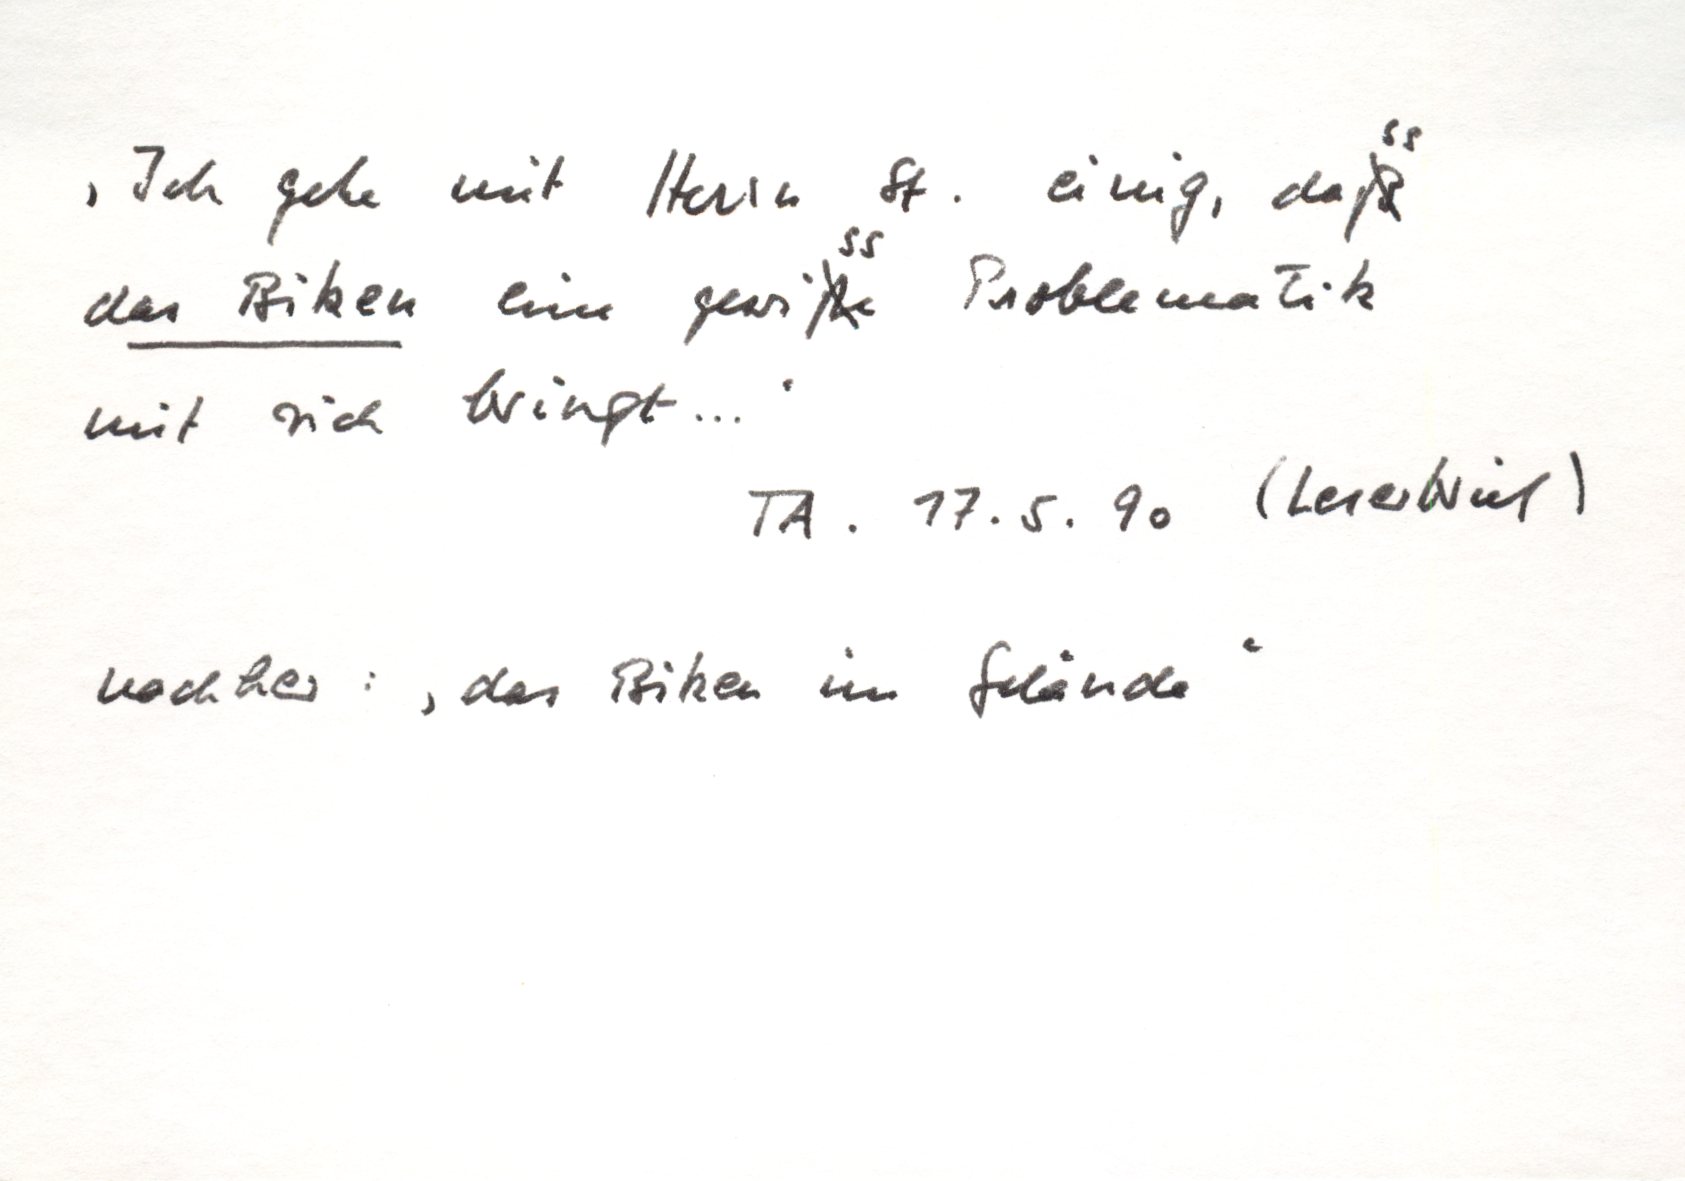 ‚Ich gehe mit Herrn St. einig, dass
das Biken eine gewisse Problematik
mit sich bringt...‘
TA. 17.5.90 (Leserbrief)
nachher: ‚das Biken im Gelände‘